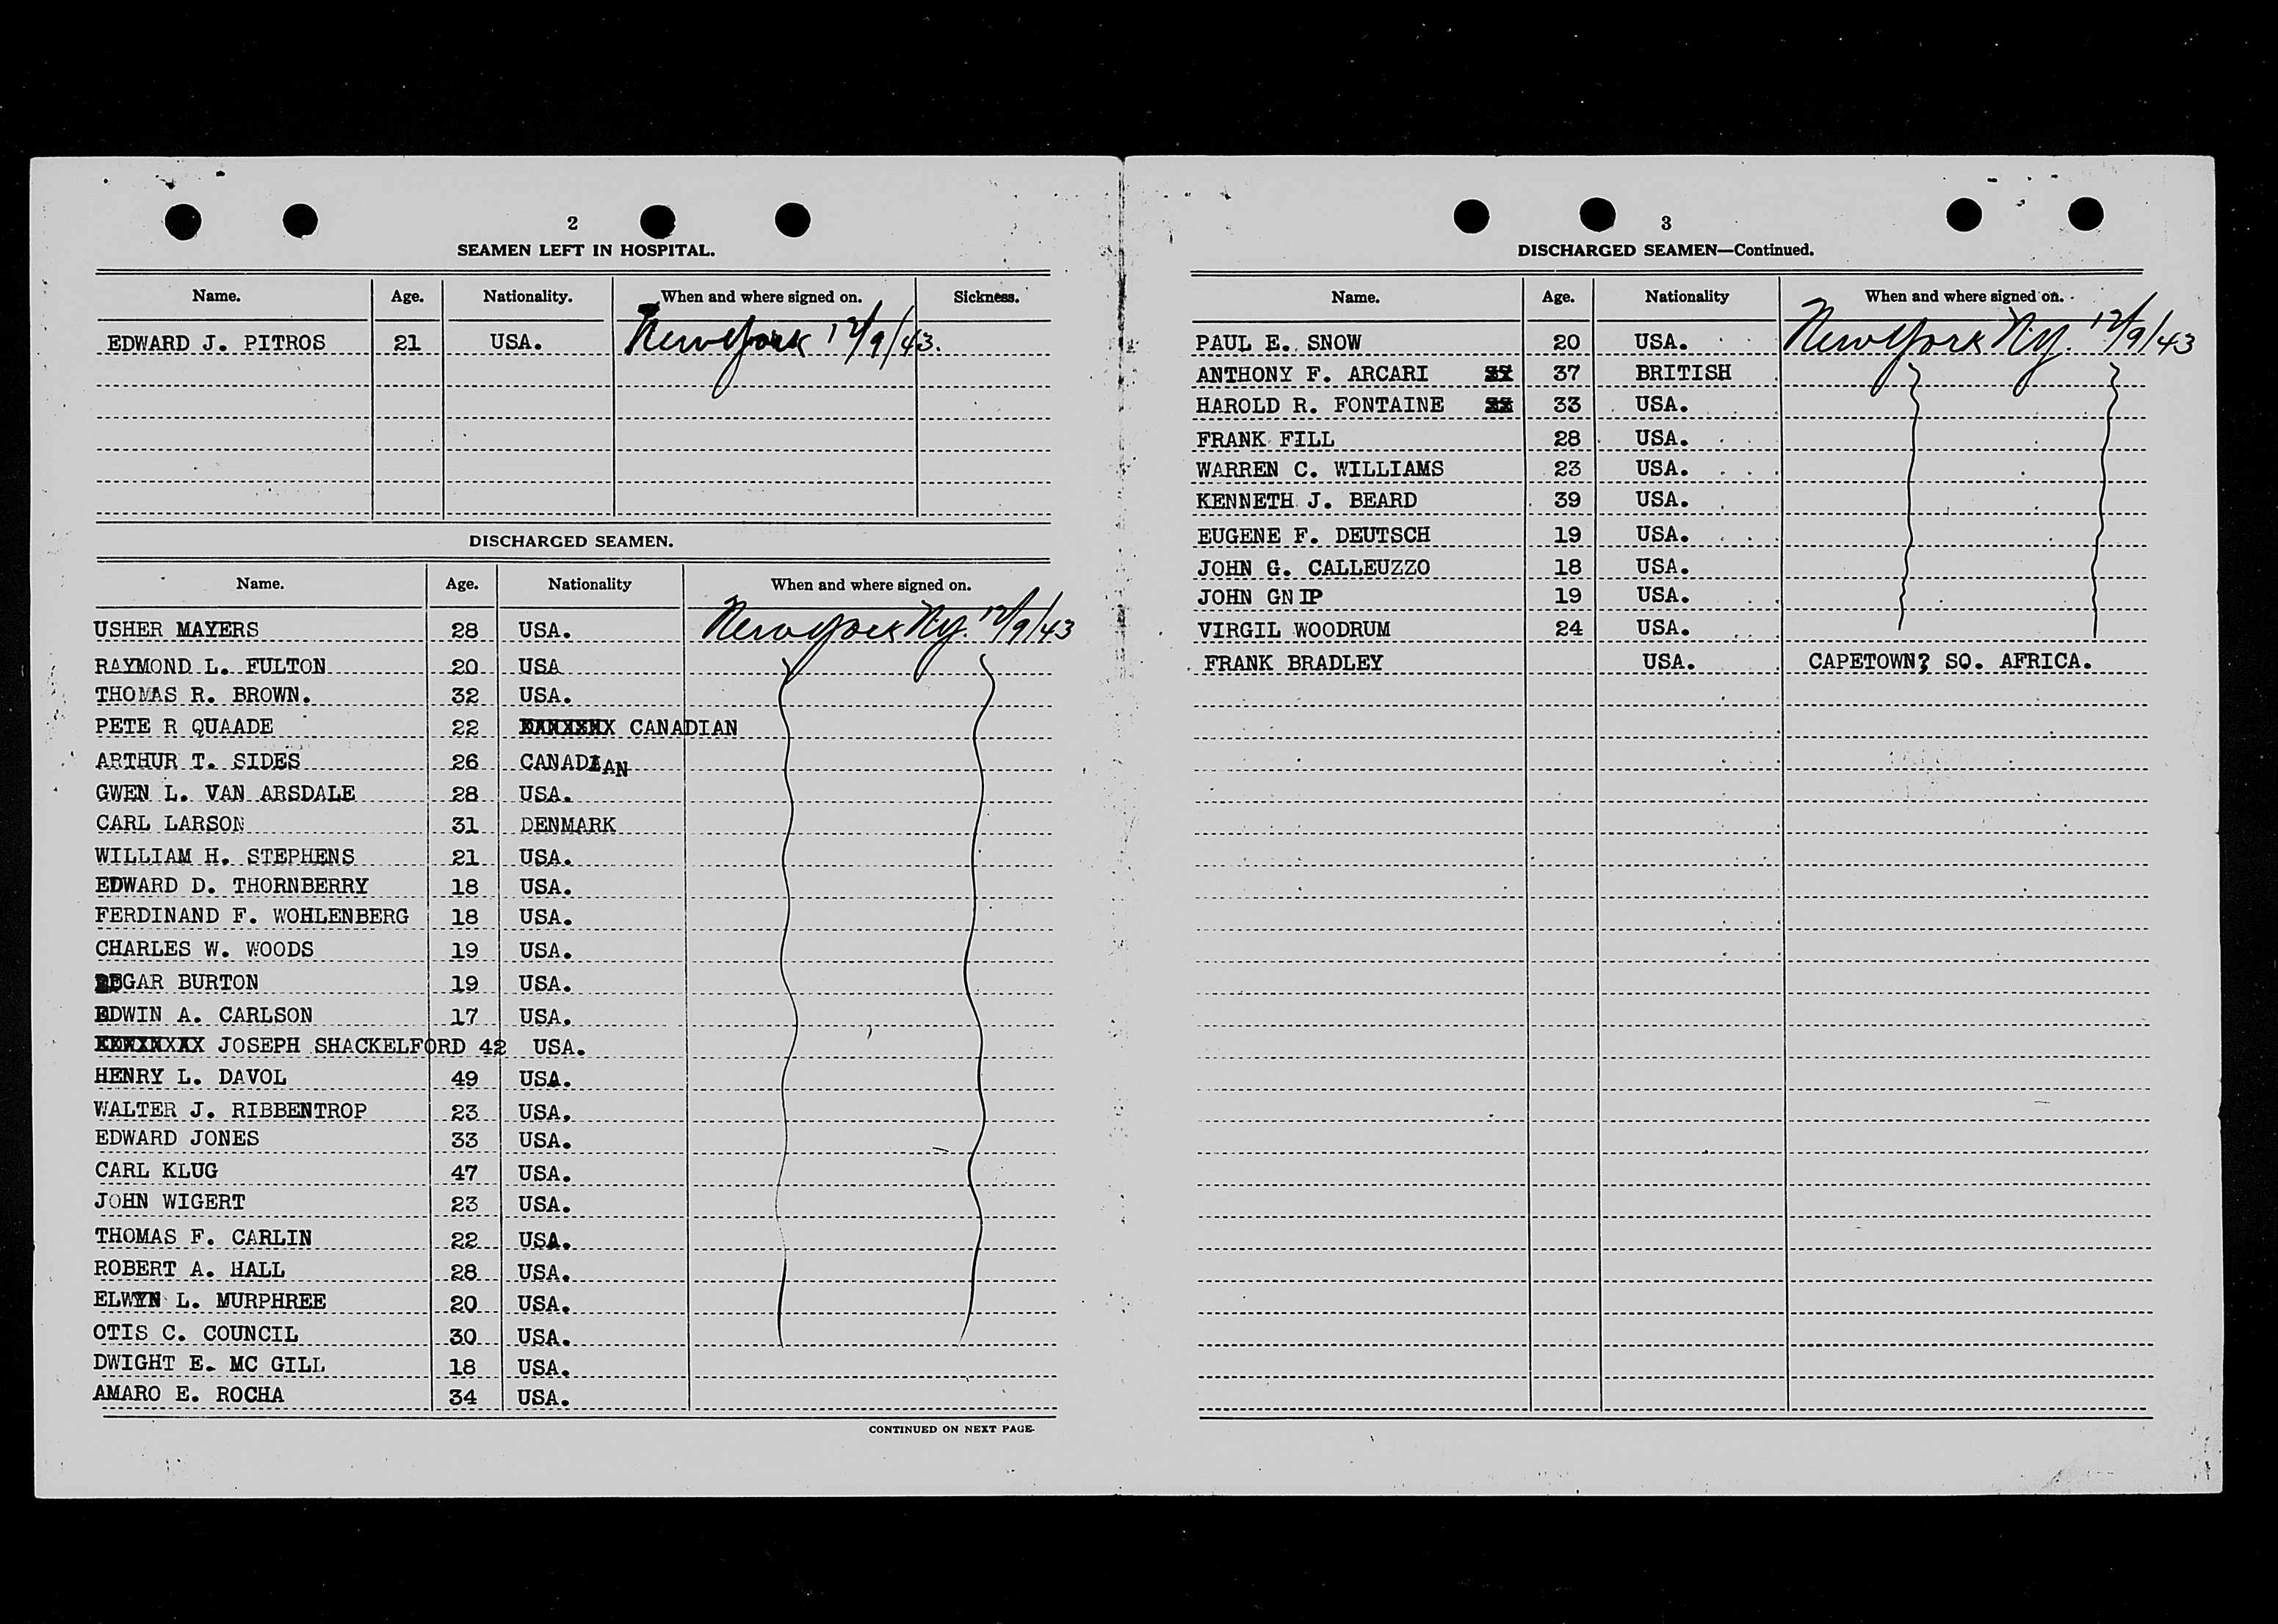 2
SEAMEN LEFT IN HOSPITAL.
Name. Age. Nationality. When and where signed on. Sickness.
EDWARD J. PITROS 21 USA. New York 12/9/43.
DISCHARGED SEAMEN.
Name. Age. Nationality When and where signed on.
USHER MAYERS 28 USA. New York Ny. 12/9/43
RAYMOND L. FULTON 20 USA
THOMAS R. BROWN. 32 USA.
PETE R QUAADE 22 CANADIAN
ARTHUR T. SIDES 26 CANADIAN
GWEN L. VAN ARSDALE 28 USA.
CARL LARSON 31 DENMARK
WILLIAM H. STEPHENS 21 USA.
EDWARD D. THORNBERRY 18 USA.
FERDINAND F. WOHLENBERG 18 USA.
CHARLES W. WOODS 19 USA.
EDGAR BURTON 19 USA.
EDWIN A. CARLSON 17 USA.
JOSEPH SHACKELFORD 42 USA.
HENRY L. DAVOL 49 USA.
WALTER J. RIBBENTROP 23 USA.
EDWARD JONES 33 USA.
CARL KLUG 47 USA.
JOHN WIGERT 23 USA.
THOMAS F. CARLIN 22 USA.
ROBERT A. HALL 28 USA.
ELWYN L. MURPHREE 20 USA.
OTIS C. COUNCIL 30 USA.
DWIGHT E. MC GILL 18 USA.
AMARO E. ROCHA 34 USA.
CONTINUED ON NEXT PAGE.
3
DISCHARGED SEAMEN—Continued.
Name. Age. Nationality When and where signed on.
PAUL E. SNOW 20 USA. New York Ny. 12/9/43
ANTHONY F. ARCARI 37 BRITISH
HAROLD R. FONTAINE 33 USA.
FRANK FILL 28 USA.
WARREN C. WILLIAMS 23 USA.
KENNETH J. BEARD 39 USA.
EUGENE F. DEUTSCH 19 USA.
JOHN G. CALLEUZZO 18 USA.
JOHN GNIP 19 USA.
VIRGIL WOODRUM 24 USA.
FRANK BRADLEY USA. CAPETOWN? SO. AFRICA.